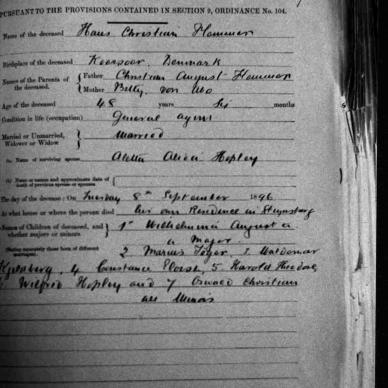 PURSUANT TO THE PROVISIONS CONTAINED IN SECTION 9, ORDINANCE No. 104.
Name of the deceased Hans Christian Hammer
Birthplace of the deceased Korsoor, Denmark
Names of the Parents of the deceased. Father Christian August Hammer
Mother Betty von
Age of the deceased 48 years Six months
Condition in life (occupation) General agent
Married or Unmarried, Widower or Widow Married
(a) Name of surviving spouse Aletta Alida Hopley
(b) Name or names and approximate date of death of previous spouse or spouses
The day of the decease: On Tuesday 8th September 1896
At what house or where the person died his own Residence in Steynsburg
Names of Children of deceased, and whether majors or minors 1st Wilhelmina Augusta
a Major
2 Marius 3 Waldemar
4 Constance Eloise, 5 Harold Theodore
Wilfred Hopley and 7 Oswald Christian
all Minors